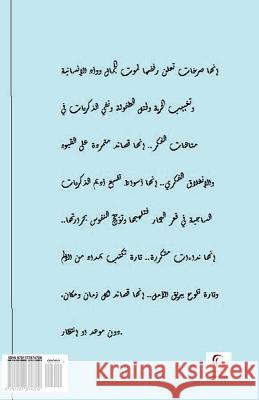 إنها صرخات تعلن رفضها لموت الجمال ووداد الإنسانية
وتغييب الحرية وقتل الطفولة ونفي الذكريات في
متاهات الفكر.. إنها قصائد متمردة على القيود
والإنغلاق الفكري.. إنها أسواط تلسع أديم الذكريات
الساجية في قعر البحار فتلهبها وتؤجج النفوس بحرارتها..
إنها نداءات متكررة.. تارة تكتب بمداد من الألم
وتارة تلوح ببريق الأمل.. إنها قصائد لكل زمان ومكان.
دون موعد أو إنتظار.